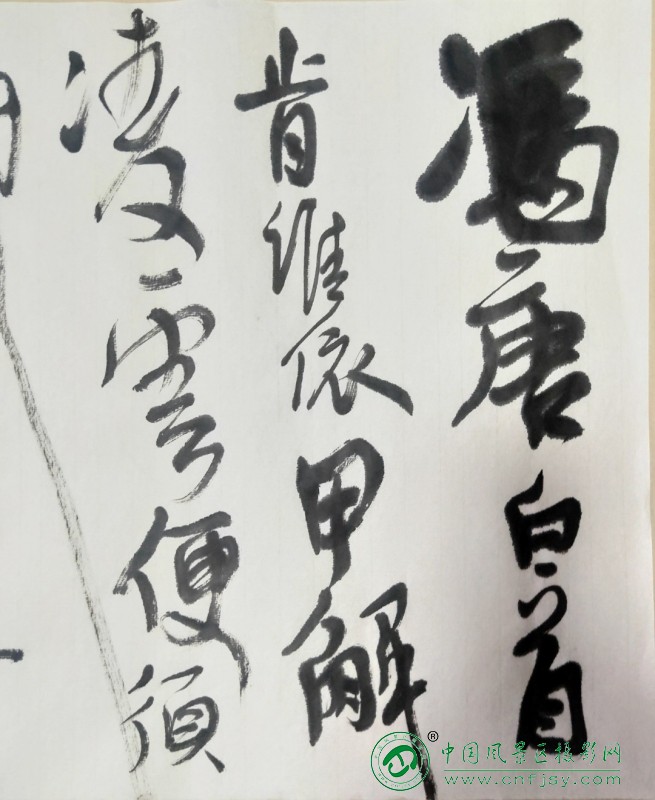 馮唐白首
肯維依甲解
凌雲便須
®
中国风景区摄影网
www.cnfjsy.com